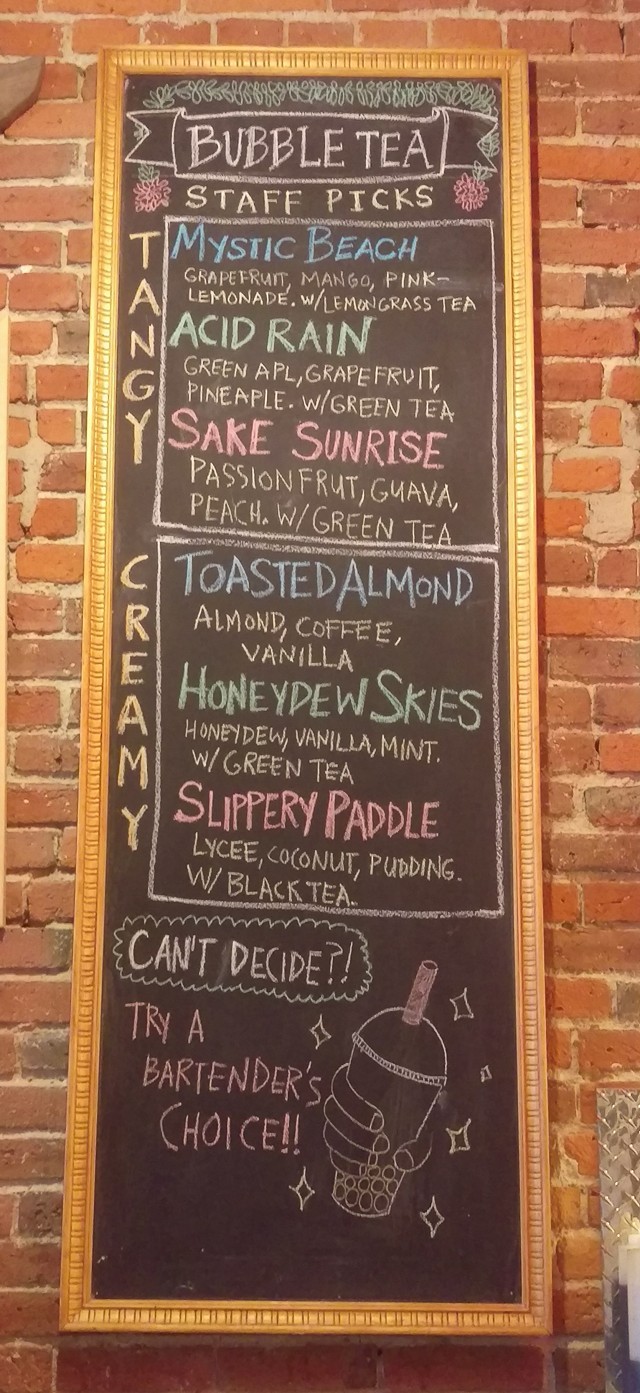 BUBBLE TEA
STAFF PICKS
TANGY
MYSTIC BEACH
GRAPEFRUIT, MANGO, PINK-
LEMONADE. W/LEMONGRASS TEA
ACID RAIN
GREEN APL, GRAPEFRUIT,
PINEAPLE. W/GREEN TEA
SAKE SUNRISE
PASSION FRUT, GUAVA,
PEACH. W/GREEN TEA
CREAMY
TOASTED ALMOND
ALMOND, COFFEE,
VANILLA
HONEYDEW SKIES
HONEYDEW, VANILLA, MINT.
W/GREEN TEA
SLIPPERY PADDLE
LYCEE, COCONUT, PUDDING.
W/BLACK TEA.
CAN'T DECIDE?!
TRY A
BARTENDER'S
CHOICE!!